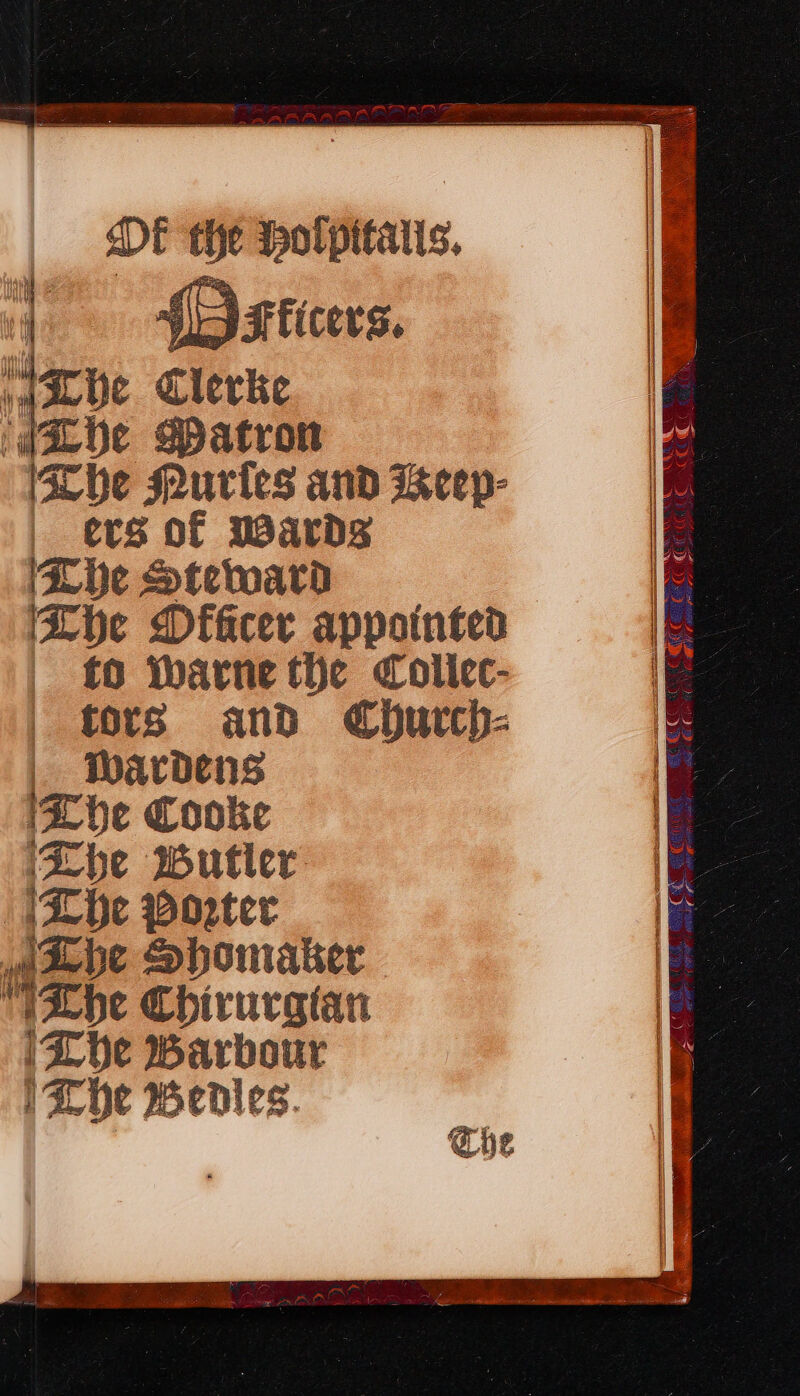 Of the Hoſpitalls.
OFficers.
The Clerke
The Matron
The Nurſes and Keep-
ers of Wards
The Steward
The Officer appointed
to warne the Collec-
tors and Church-
wardens
The Cooke
The Butler
The Porter
The Shomaker
The Chirurgian
The Barbour
The Bedles.
The